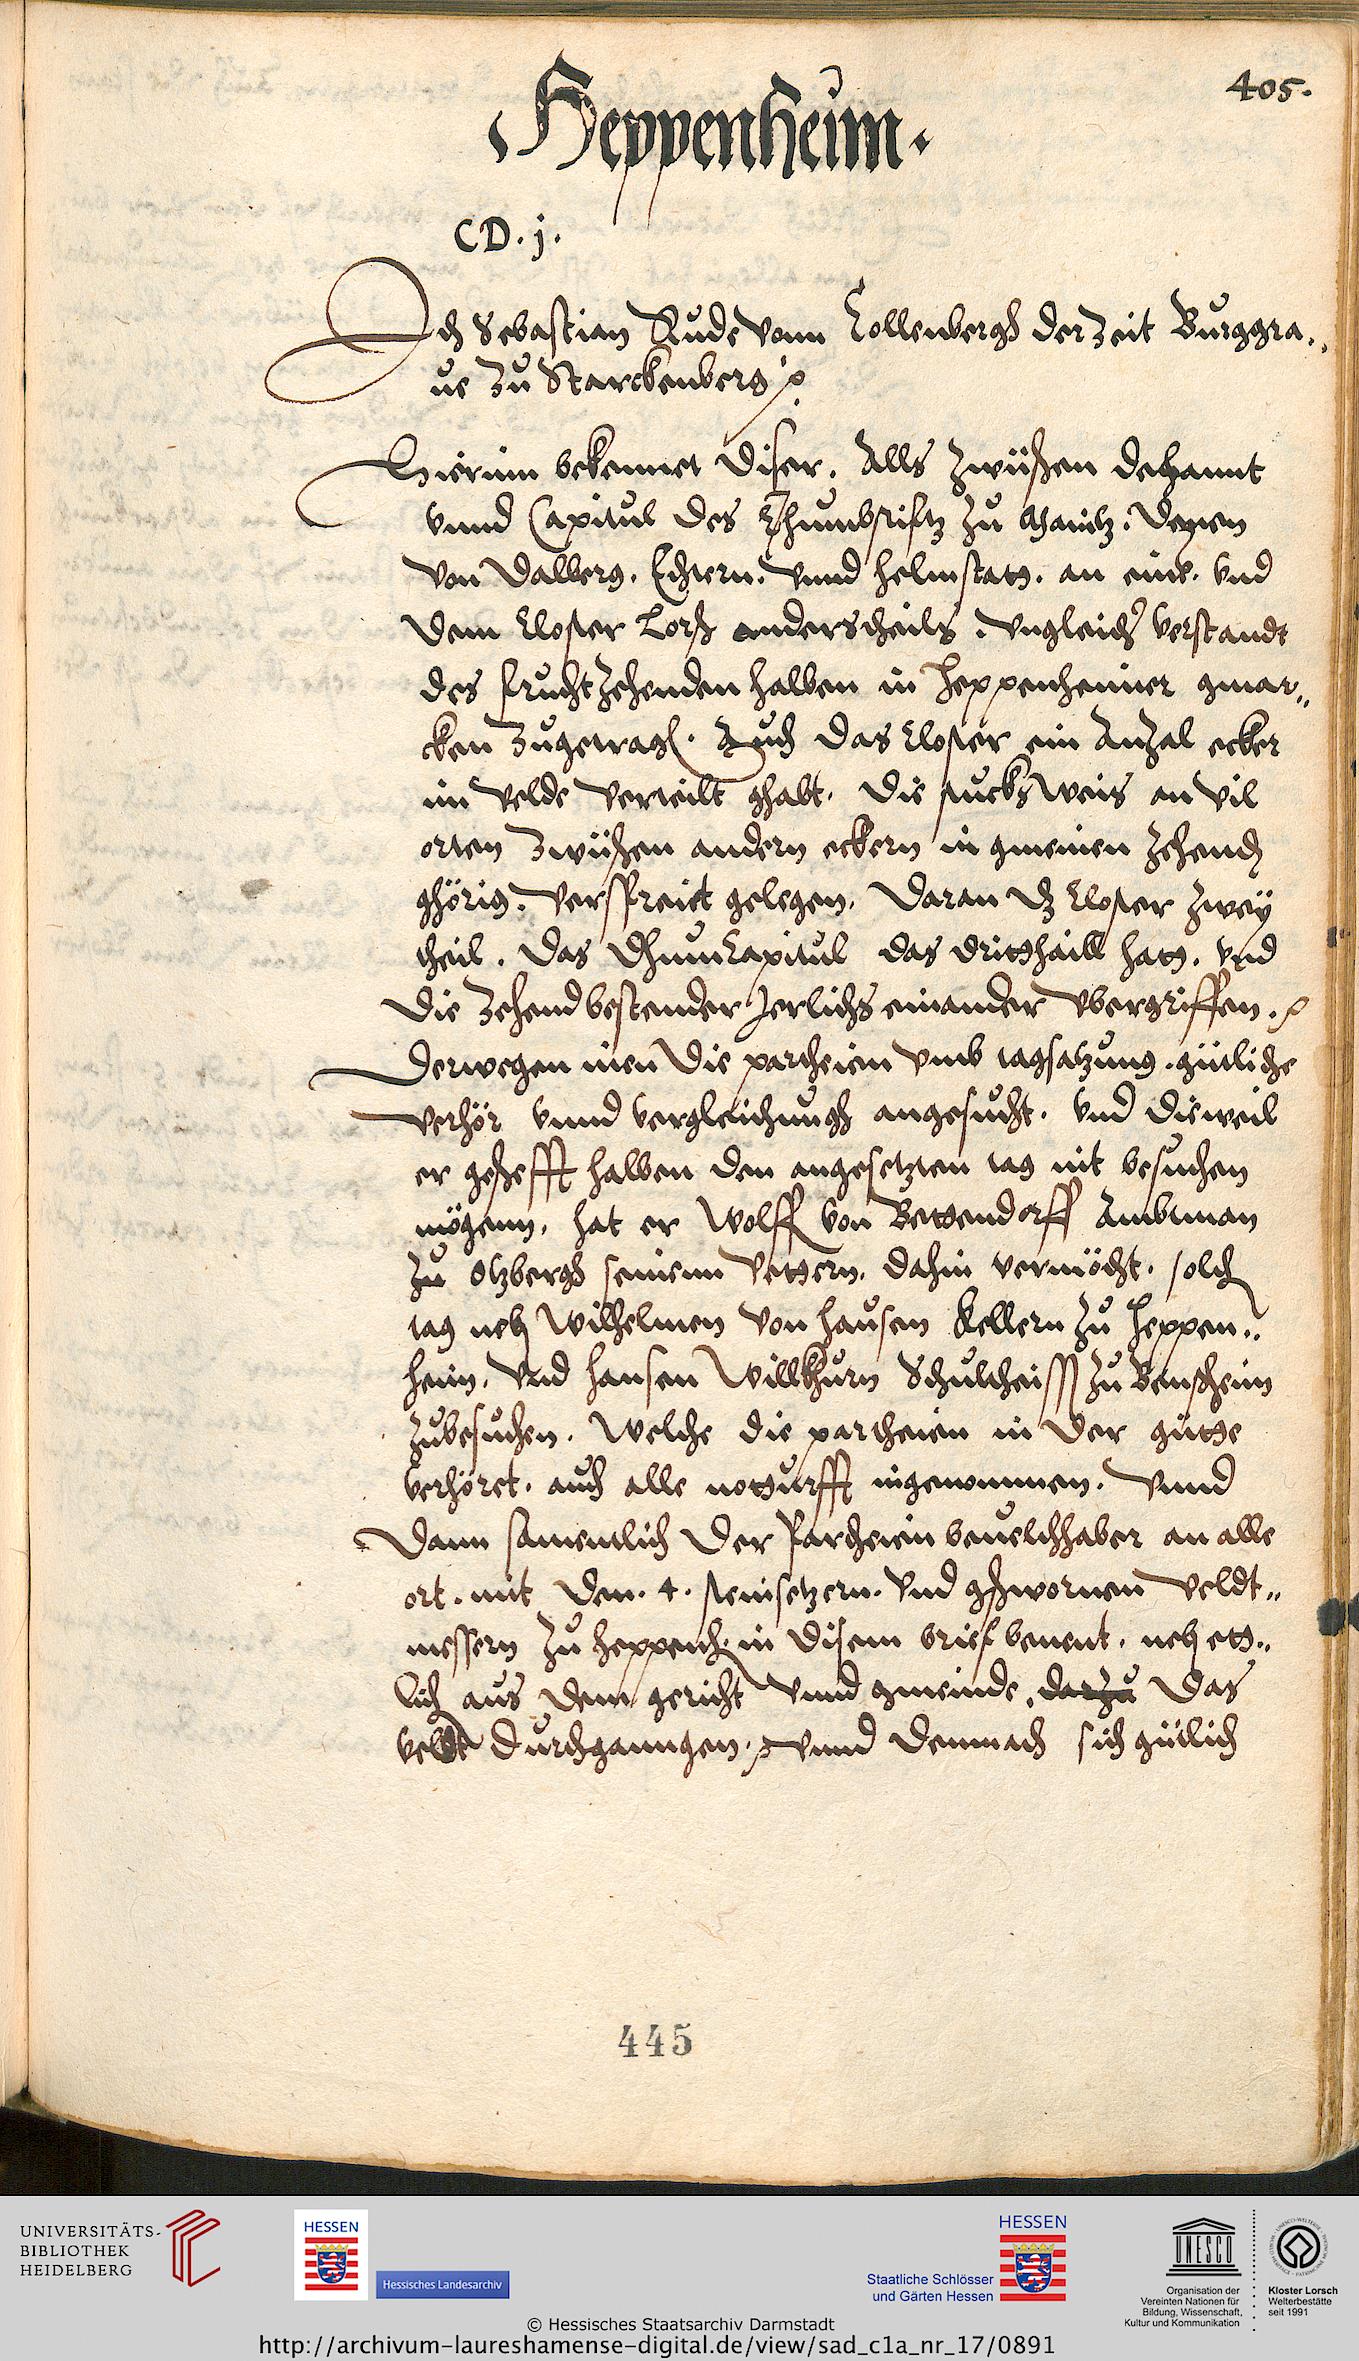 405.
Heppenheim.
CD. j.
Ich Sebastian Rude vonn Collenbergh der zeit Burggra„
ue zu Starckenberg
Hierinn bekennet diser. Alls zwüschen dechannt
vnnd Capitul des Thumbstiftz zu Maintz. deren
von Dalberg. Echtern. vnnd Helmstatt. an eim. vnd
dem Closter Lorsch anderstheils. vngleicher verstandt
des fruchtzehenden halben in Heppenheimer gmar„
cken zugetragen. Auch das Closter ein Anzal ecker
im velde verteilt ghabt. die stucksweis an vil
orten zwüschen andern eckern in gmeinen zehend
ghörig. verspreit gelegen. daran dz Closter zwey
theil. das Dhumcapitul das dritthaill hatt. vnd
die zehendbestender Jerlichs einander vbergriffen.
derwegen inen die partheien vmb tagsatzung. gütliche
verhör vnnd vergleichungh angesucht. vnd dieweil
er geschefft halben den angesetzten tag nit besuchen
mögenn. hat er Wolff von Bettendorff Ambtman
zu Otzbergh seinenn vettern. dahin vermöcht. solch
tag neb Wilhelmen von Hausen Kellern zu Heppen„
heim. vnd Hansen Willkhurn Schultheissen zu Bensheim
zubesuchen. Welche die partheien in der gütte
verhöret. auch alle notturfft ingenommen. vnnd
dann samentlich der Partheien beuelchhaber an alle
ort. mit den. 4. steinsetzern. vnd gschwornen veldt„
messern zu Heppenh. in disem brief benent. neb ett„
lich aus dem gericht vnnd gmeinde. darzu das
veldt durchganngen. vnnd demnach sich gütlich
445
UNIVERSITÄTS-
BIBLIOTHEK
HEIDELBERG
HESSEN
Hessisches Landesarchiv
HESSEN
Staatliche Schlösser
und Gärten Hessen
UNESCO
Organisation der
Vereinten Nationen für
Bildung, Wissenschaft,
Kultur und Kommunikation
Kloster Lorsch
Welterbestätte
seit 1991
© Hessisches Staatsarchiv Darmstadt
http://archivum-laureshamense-digital.de/view/sad_c1a_nr_17/0891